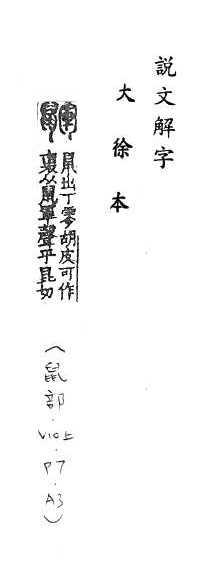 說文解字
大徐本
鼲
鼠出丁零胡皮可作
裘从鼠軍聲乎昆切
(鼠部.V10上.P7.A3)